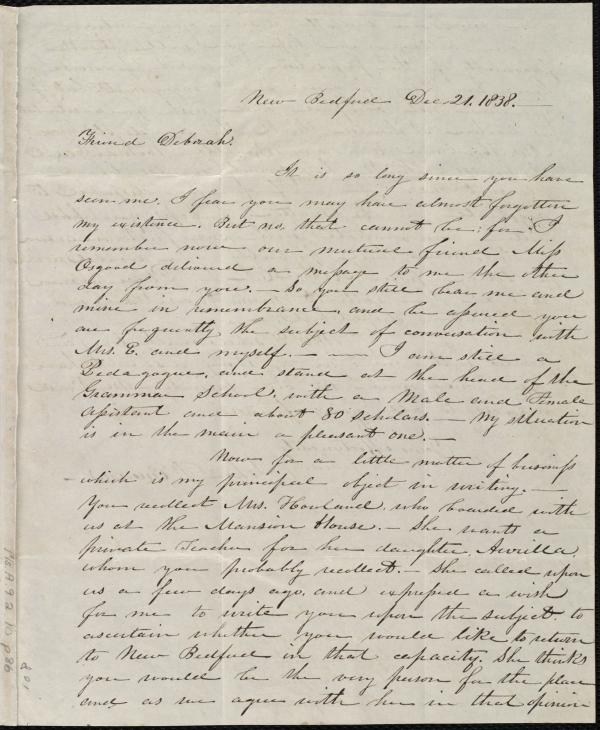 New Bedford Dec. 21. 1838.
Friend Deborah.
It is so long since you have
seen me, I fear you may have almost forgotten
my existence. But no, that cannot be; for I
remember now our mutual friend Miss
Osgood delivered a message to me the other
day from you. — So you still bear me and
mine in remembrance, and be assured you
are frequently the subject of conversation with
Mrs. E. and myself. — — I am still a
Pedagogue, and stand at the head of the
Grammar School, with a Male and Female
Assistant and about 80 scholars. — My situation
is in the main a pleasant one. —
Now for a little matter of business
which is my principal object in writing. —
You recollect Mrs. Howland, who boarded with
us at the Mansion House. — She wants a
private Teacher for her daughter, Avrilla,
whom you probably recollect. — She called upon
us a few days ago, and expressed a wish
for me to write you upon the subject, to
ascertain whether you would like to return
to New Bedford in that capacity. She thinks
you would be the very person for the place
and as we agree with her in that opinion
Ms A 9.2 10 p 86